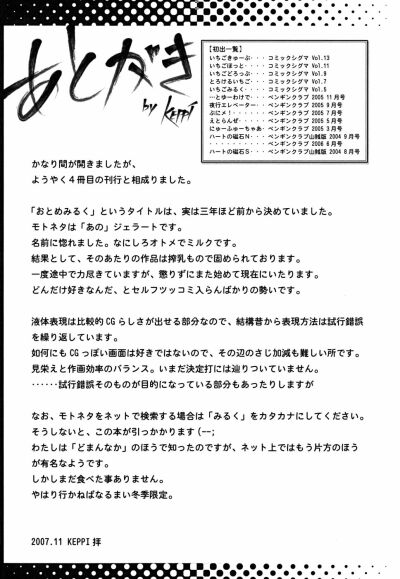 あとがき
by KEPPI
【初出一覧】
いちごきゅーぶ・・・ コミックシグマ Vol.13
いちごぽっと・・・・ コミックシグマ Vol.11
いちごどろっぷ・・・ コミックシグマ Vol.9
とろけるいちご・・・ コミックシグマ Vol.7
いちごみるく・・・・ コミックシグマ Vol.5
…とゆーわけで・・・ ペンギンクラブ 2005 11月号
夜行エレベーター・・ ペンギンクラブ 2005 9月号
ぷにメ！・・・・・・ ペンギンクラブ 2005 7月号
えとらんぜ・・・・・ ペンギンクラブ 2005 5月号
にゅーふゅーちゃあ・ ペンギンクラブ 2005 3月号
ハートの磁石N・・・ ペンギンクラブ山賊版 2004 9月号
・・・・・・・・・・ ペンギンクラブ 2006 6月号
ハートの磁石S・・・ ペンギンクラブ山賊版 2004 8月号
かなり間が開きましたが、
ようやく４冊目の刊行と相成りました。
「おとめみるく」というタイトルは、実は三年ほど前から決めていました。
モトネタは「あの」ジェラートです。
名前に惚れました。なにしろオトメでミルクです。
結果として、そのあたりの作品は搾乳もので固められております。
一度途中で力尽きていますが、懲りずにまた始めて現在にいたります。
どんだけ好きなんだ、とセルフツッコミ入らんばかりの勢いです。
液体表現は比較的CGらしさが出せる部分なので、結構昔から表現方法は試行錯誤
を繰り返しています。
如何にもCGっぽい画面は好きではないので、その辺のさじ加減も難しい所です。
見栄えと作画効率のバランス。いまだ決定打には辿りついていません。
……試行錯誤そのものが目的になっている部分もあったりしますが
なお、モトネタをネットで検索する場合は「みるく」をカタカナにしてください。
そうしないと、この本が引っかかります(--;
わたしは「どまんなか」のほうで知ったのですが、ネット上ではもう片方のほう
が有名なようです。
しかしまだ食べた事ありません。
やはり行かねばなるまい冬季限定。
2007.11 KEPPI 拝